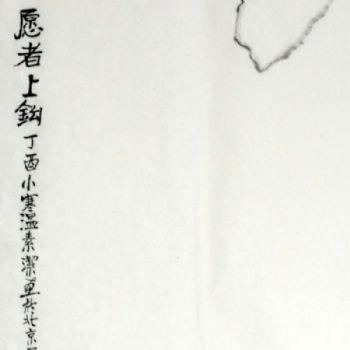 愿者上鈎丁酉小寒温素潔画於北京